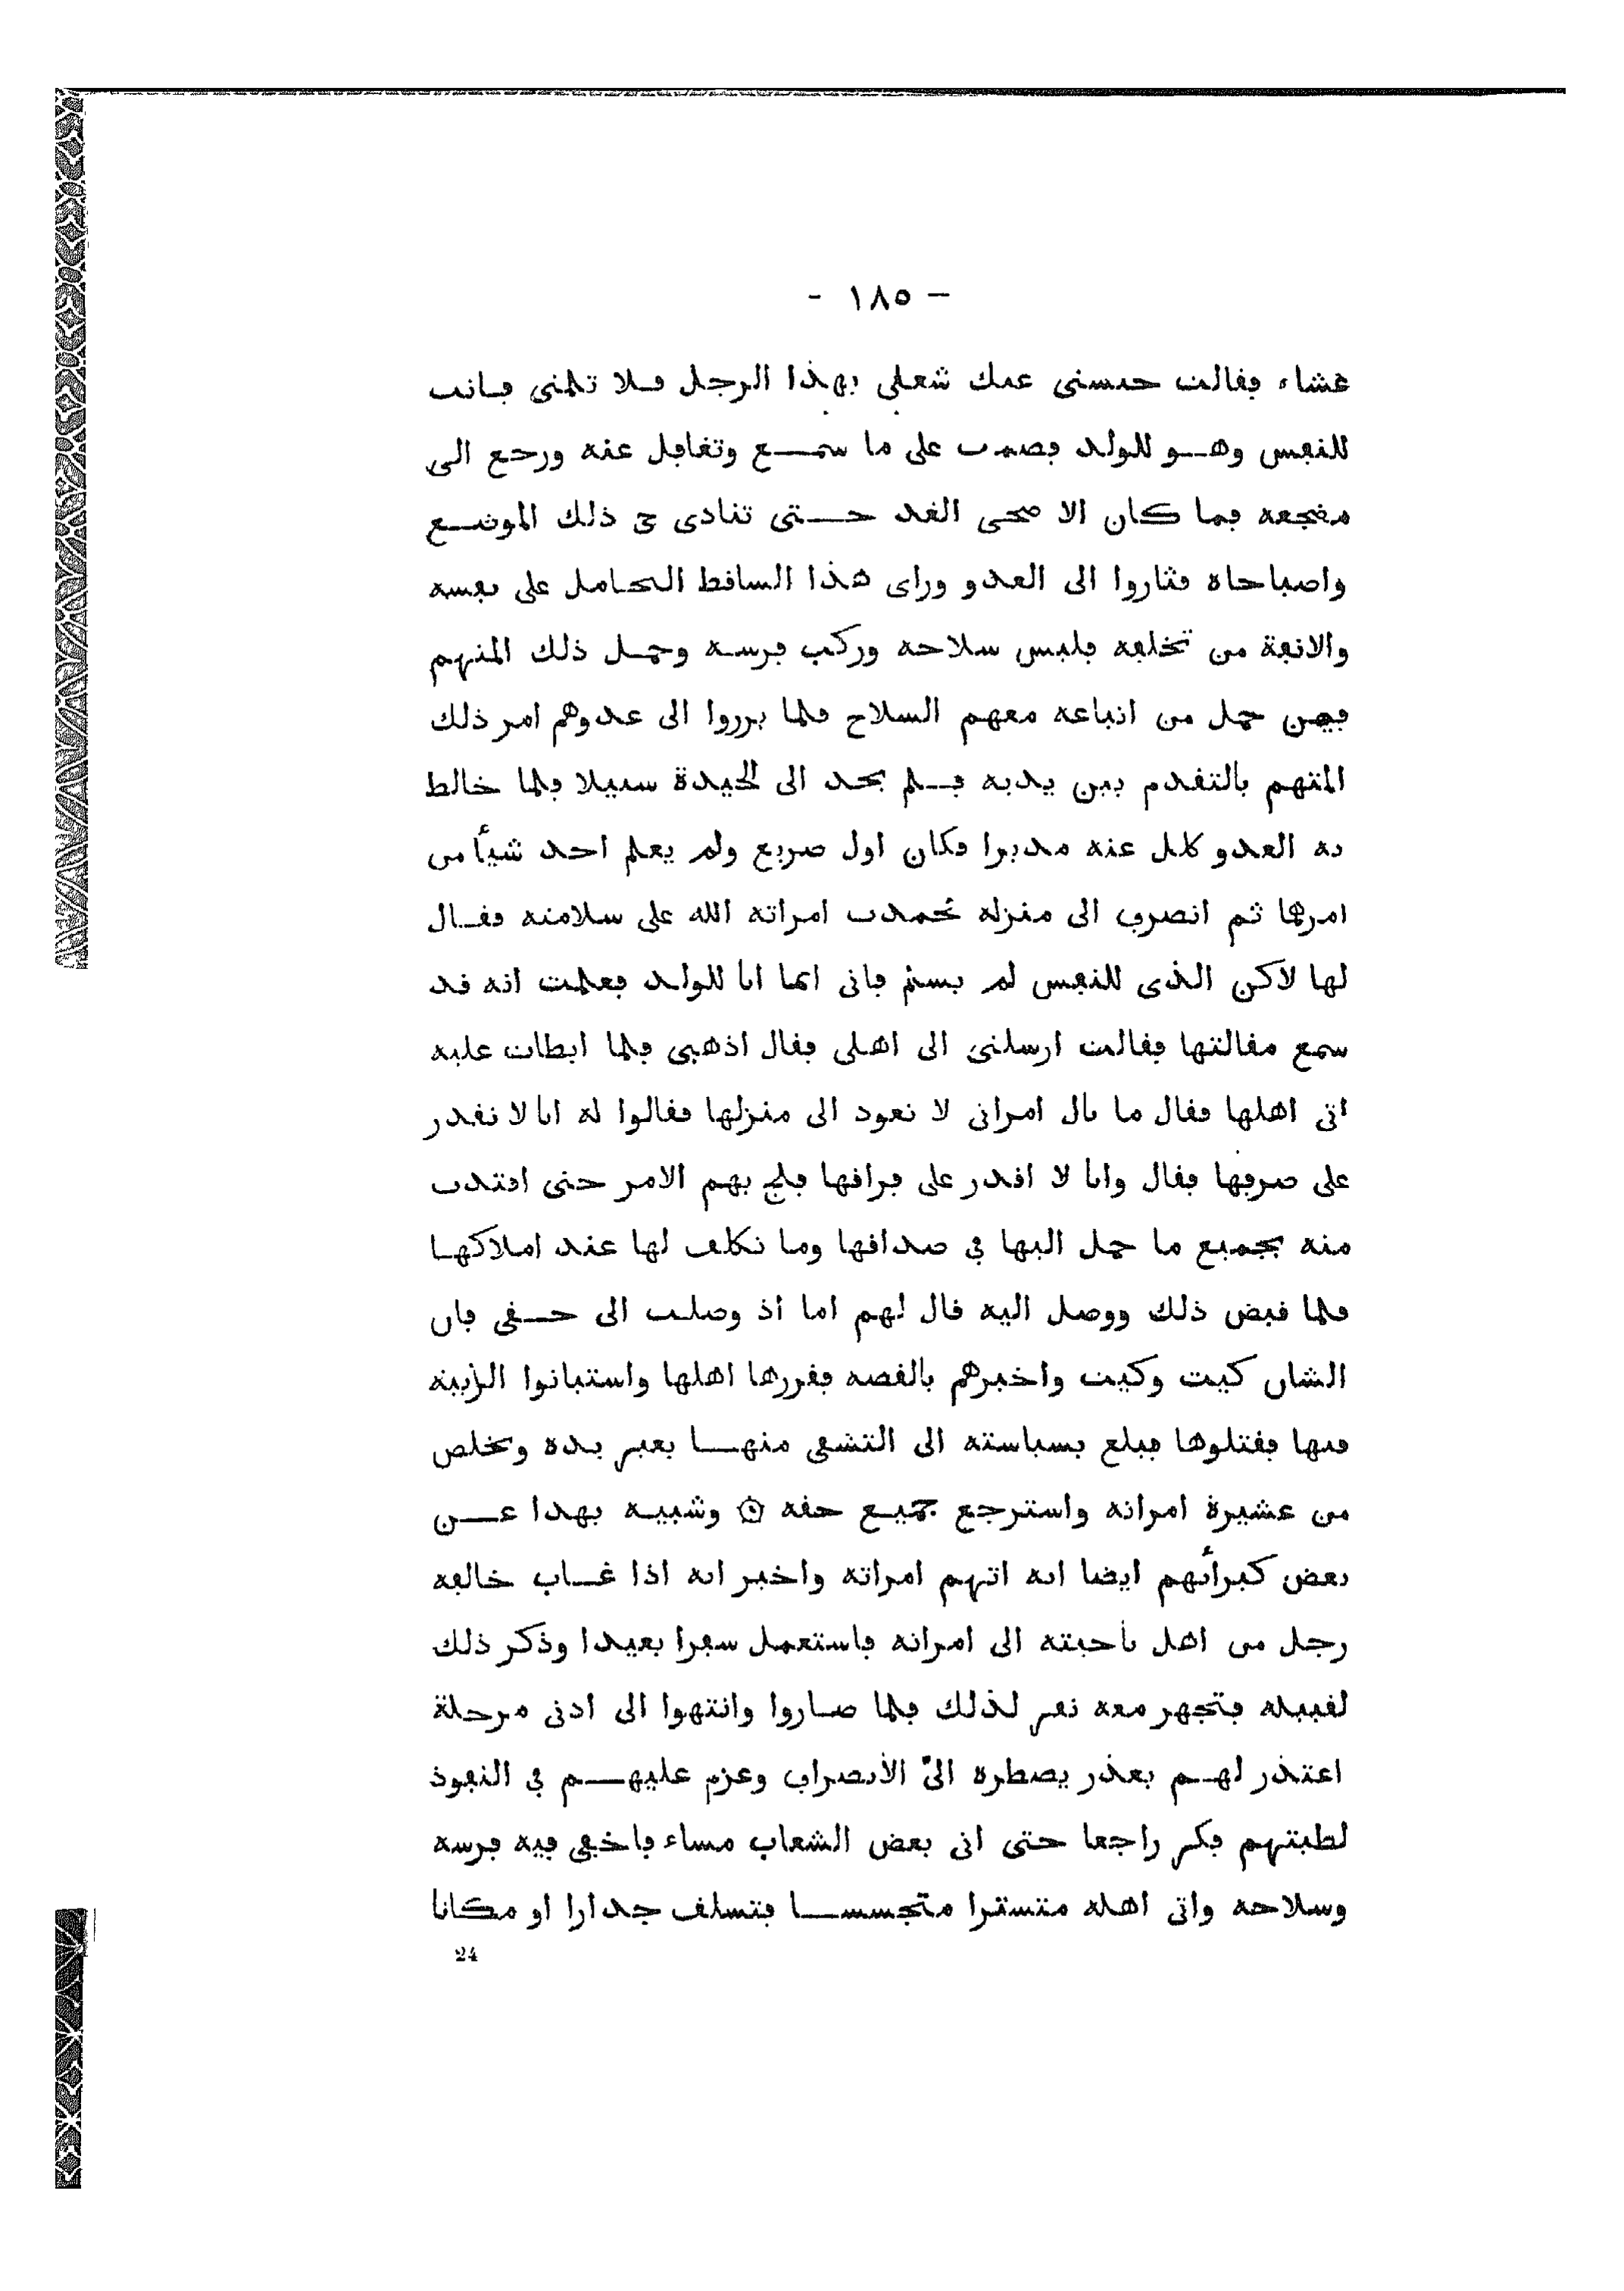 - ١٨٥ -
عشاء فقالت حبسنى عنك شغلى بهذا الرجل فلا تلمنى فانت
للنفس وهو للولد فصمت على ما سمع وتغافل عنه ورجع الى
مضجعه فما كان الا ضحى الغد حتى تنادى فى ذلك الموضع
واصباحاه فثاروا الى العدو وراى هذا الساقط الحامل على نفسه
والانفة من تخلفه فلبس سلاحه وركب فرسه وحمل ذلك المتهم
فيمن حمل من اتباعه معهم السلاح فلما برزوا الى عدوهم امر ذلك
المتهم بالتقدم بين يديه فلم يجد الى الحيدة سبيلا فلما خالط
به العدو كلل عنه مدبرا فكان اول صريع ولم يعلم احد شيأ من
امرها ثم انصرف الى منزله فحمدت امراته الله على سلامته فقال
لها لاكن الذى للنفس لم يسلم فانى انما انا للولد فعلمت انه قد
سمع مقالتها فقالت ارسلنى الى اهلى فقال اذهبى فلما ابطات عليه
اتى اهلها فقال ما بال امراتى لا تعود الى منزلها فقالوا له انا لا نقدر
على صرفها فقال وانا لا اقدر على فراقها فلج بهم الامر حتى افتدت
منه بجميع ما حمل اليها فى صداقها وما تكلف لها عند املاكها
فلما قبض ذلك ووصل اليه قال لهم اما اذ وصلت الى حقى فان
الشان كيت وكيت واخبرهم بالقصه فقررها اهلها واستبانوا الريبة
فيها فقتلوها فبلغ بسياسته الى التشفى منها بغير يده وتخلص
من عشيرة امراته واسترجع جميع حقه ۞ وشبيه بهذا عن
بعض كبرأئهم ايضا انه اتهم امراته واخبر انه اذا غاب خالفه
رجل من اهل ناحيته الى امراته فاستعمل سفرا بعيدا وذكر ذلك
لقبيله فتجهز معه نفر لذلك فلما صاروا وانتهوا الى ادنى مرحلة
اعتذر لهم بعذر يضطره الى الانصراف وعزم عليهم فى النفوذ
لطيتهم فكر راجعا حتى اتى بعض الشعاب مساء فاخفى فيه فرسه
وسلاحه واتى اهله متسترا متجسسا فتسلق جدارا او مكانا
24